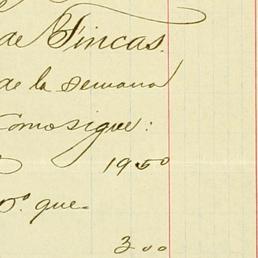 de Fincas.
de la semana
Como sigue:
19.50
que-
3.00